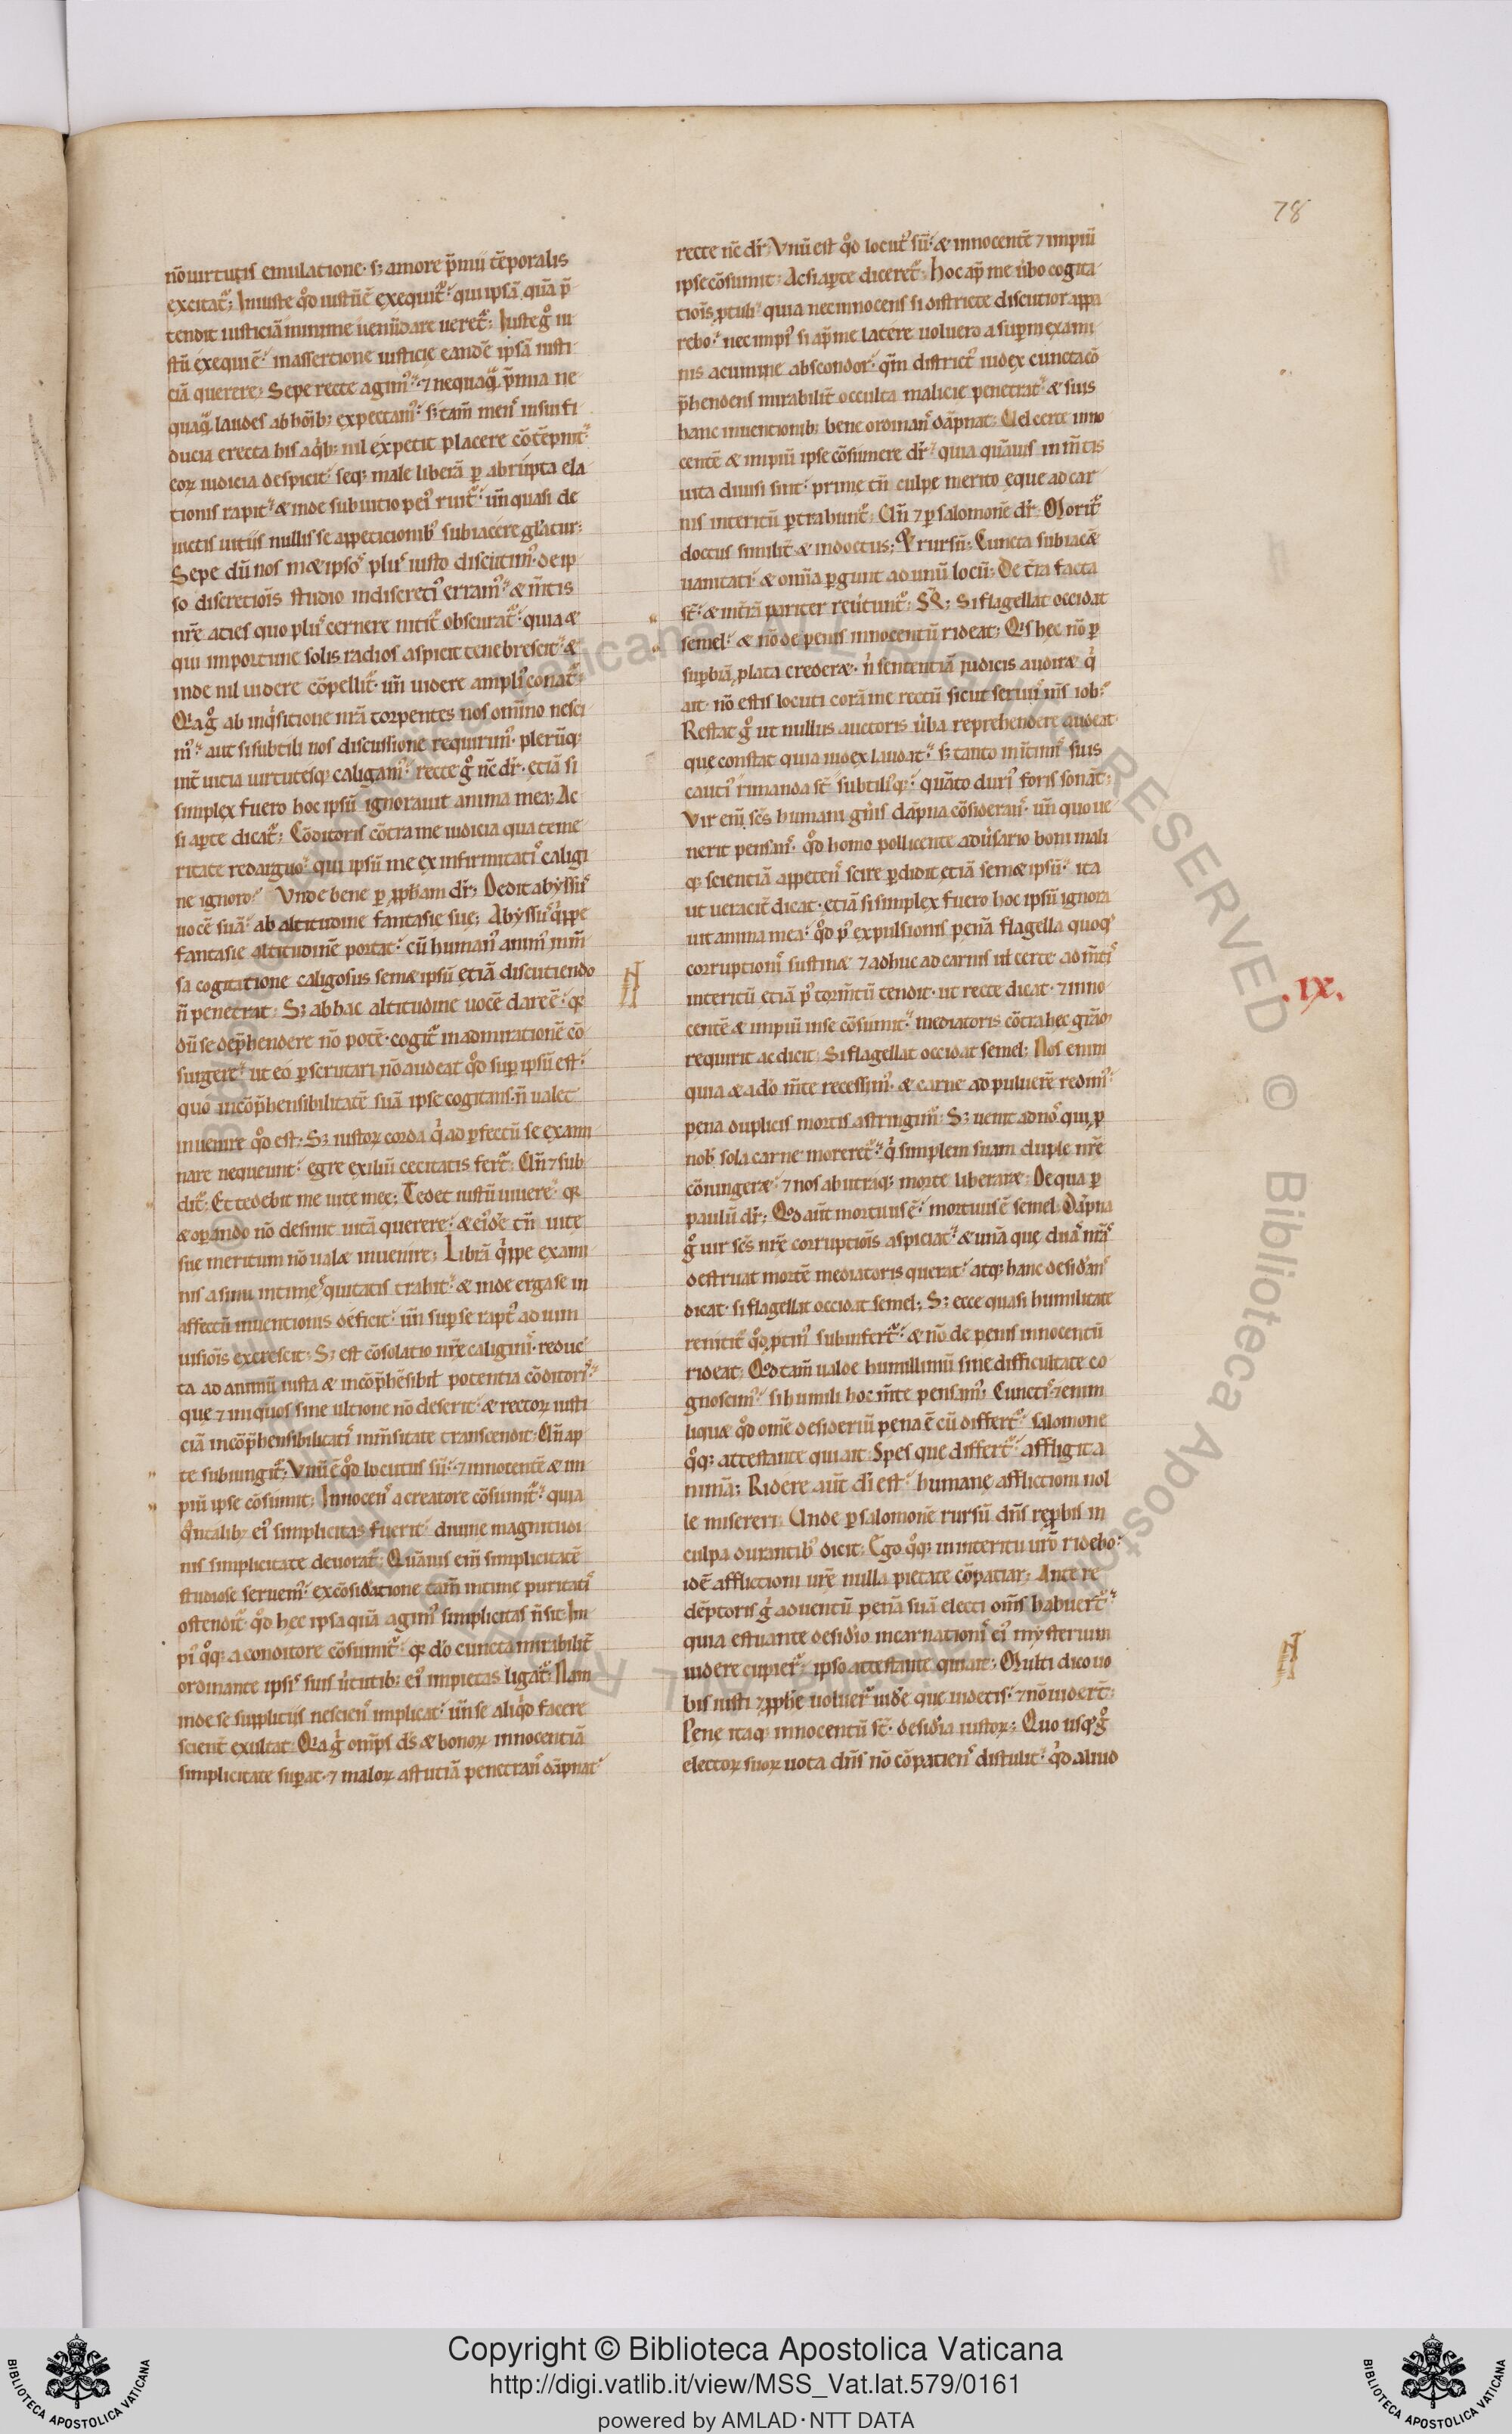 78
nō uirtutis emulatione· s; amore p̄mii tēporalis
excitat᷒; Iniuste q̊d iustū ē exequit᷒· qui ipsā quā p̄
tendit iusticiā minime uenūdare ueret᷒; Iuste g̊ iu
stū exequi ē· in assertione iusticie eandē ipsā iusti
ciā querere; Sepe recte agim᷒· ⁊ nequaq̄ p̄mia ne
quaq̄ laudes ab hoīb; expectam᷒· s; tam̄ mens᷒ in sui fi
ducia erecta his a q̇b; nil expetit placere cōtēpnit·
eoꝝ iudicia despicit· seq; male liberā ꝑ abrupta ela
tionis rapit· & inde sub uitio pei᷒ ruit᷒· uñ quasi de
uictis uitiis nullis se appeticionib᷒ subiacere gl̄atur;
Sepe dū nos metipsos᷒ plus᷒ iusto discutim᷒· de ip
so discretiōis studio indiscreti᷒ erram᷒· & m̄tis
nr̄e acies quo plus᷒ cernere nitit᷒ obscurat᷒· quia &
qui importune solis radios aspicit tenebrescit· &
inde nil uidere cōpellit᷒· uñ uidere ampli᷒ conat᷒;
Q̄a g̊ ab inq̇sitione nr̄a torpentes nos om̄ino nesci
m᷒· aut si subtili nos discussione requirim᷒· plerūq;
int̄ uicia uirtutesq; caligam᷒· recte g̊ nc̄ dr̄· etiā si
simplex fuero hoc ipsū ignorauit anima mea; Ac
si aꝑte dicat᷒; Cōditoris cōtra me iudicia qua teme
ritate redarguo· qui ipsū me ex infirmitatis᷒ caligi
ne ignoro· Vnde bene ꝑ ꝓph̄am dr̄; Dedit abyssus᷒
uocē suā· ab altitudine fantasie sue; Abyssus᷒ q̇ppe
fantasie altitudinē portat· cū human᷒ anim᷒ inm̄
sa cogitatione caligosus semetipsū etiā discutiendo
ñ penetrat; S; ab hac altitudine uocē dare ē· q;
dū se dep̄hendere nō potē· cogit᷒ in admirationē cō
surgere· ut eo ꝑscrutari nō audeat q̊d suꝑ ipsū est·
quo incōp̄hensibilitatē suā ipse cogitans· ñ ualet
inuenire q̊d est; S; iustoꝝ corda q̇ ad ꝑfectū se exami
nare nequeunt· egre exiliū cecitatis fert᷒; Uñ ⁊ sub
dit᷒; Et tedebit me uite mee; Tedet iustū uiuere· q;
& oꝑando nō desinit uitā querere· & ei᷒dē tn̄ uite
sue meritum nō ualet inuenire; Librā q̇ppe exami
nis a sinu intime equitatis trahit· & inde erga se in
affectu inuentionis deficit· uñ suꝑ se rapt᷒ ad uim
uisiōis excrescit; S; est cōsolatio nr̄e caliginis᷒· reduc
ta ad animū iusta & incōp̄hēsibil̄ potentia cōditoris᷒·
que ⁊ iniquos sine ultione nō deserit· & rectoꝝ iusti
ciā incōp̄hensibilitatis᷒ inm̄sitate transcendit; Uñ ap
te subiungit᷒; Vnū ē q̊d locutus sū· ⁊ innocentē & im
piū ipse cōsumit; Innocens᷒ a creatore cōsumit᷒· quia
q̄ntalib; ei᷒ simplicitas fuerit· diuine magnitudi
nis simplicitate deuorat᷒; Quāuis eni᷒ simplicitatē
studiose seruem᷒· ex cōsid̄atione tam̄ intime puritatis᷒
ostendit᷒· q̊d hec ipsa quā agim᷒ simplicitas ñ sit· Im
pi᷒ q̊q; a conditore cōsumit᷒· q; dō cuncta mirabilit̄
ordinante ipsis᷒ suis u̇tutib; ei᷒ impietas ligat᷒; Nam
inde se suppliciis nesciens᷒ implicat· uñ se aliq̇d facere
scient̄ exultat; Q̄a g̊ om̄ps ds̄ & bonoꝝ innocentiā
simplicitate suꝑat· ⁊ maloꝝ astutiā penetrans᷒ dāpnat·
recte nc̄ dr̄; Vnū est q̊d locut᷒ sū· & innocentē ⁊ impiū
ipse cōsumit; Ac si aꝑte diceret᷒; hoc ap̄ me u̇bo cogita
tiōis ꝓtuli· quia nec innocens si districte discutior appa
rebo· nec impi᷒ si ap̄ me latere uoluero a supn̄i exami
nis acumine abscondor· qm̄ district᷒ iudex cuncta cō
p̄hendens mirabilit̄ occulta malicie penetrat· & suis
hanc inuentionib; bene ordinans᷒ dāpnat; Uel certe inno
centē & impiū ipse cōsumere dr̄· quia quāuis in m̄tis
uita diuisi sint· prime tn̄ culpe merito eque ad car
nis interitū ꝑtrahunt᷒; Uñ ⁊ ꝑ salomonē dr̄; Morit᷒
doctus similit̄ & indoctus; Et rursū; Cuncta subiacēt
uanitati· & om̄ia ꝑgunt ad unū locū; De t̄ra facta
st̄· & in t̄rā pariter reu̇tunt᷒; SQ̄; Si flagellat occidat
semel· & nō de penis innocentū rideat; Q̇s hec nō ꝑ
suꝑbiā ꝓlata crederet· n̄ sententiā iudicis audiret q̇
ait· nō estis locuti corā me rectū sicut seruus᷒ ms̄ iob·
Restat g̊ ut nullus auctoris u̇ba reprehendere audeat·
que constat quia iudex laudat· s; tanto int̄im᷒ suis
cauti᷒ rimanda st̄ subtili᷒q;· quāto duri᷒ foris sonāt;
Vir eni᷒ scs̄ humani gn̄is dāpna cōsiderans᷒· uñ quo ue
nerit pensans᷒· q̊d homo pollicente adu̇sario boni mali
q; scientiā appetens᷒ scire ꝑdidit etiā semetipsū· ita
ut ueracit̄ dicat· etiā si simplex fuero hoc ipsū ignora
uit anima mea· q̊d p᷒ expulsionis penā flagella quoq;
corruptionis᷒ sustinet ⁊ adhuc ad carnis ul̄ certe ad m̄tis᷒
interitū etiā p᷒ torm̄tū tendit· ut recte dicat· ⁊ inno
centē & impiū ipse cōsumit· mediatoris cōtra hec grām
requirit ac dicit; Si flagellat occidat semel; Nos enim
quia & a dō m̄te recessim᷒· & carne ad puluerē redim᷒·
pena duplicis mortis astringim᷒; S; uenit ad nos᷒ qui ꝓ
nob̄ sola carne moreret᷒· q̇ simplem suam duple nr̄e
cōiungeret· ⁊ nos ab utraq; morte liberaret; De qua ꝑ
paulū dr̄; Q̊d aūt mortuus ē· mortuus ē semel; Dāpna
g̊ uir scs̄ nr̄e corruptiōis aspiciat· & unā que duas᷒ nr̄as᷒
destruat mortē mediatoris querat· atq; hanc desid̄ans᷒
dicat· si flagellat occidat semel; S; ecce quasi humilitate
renitit᷒ q̊d ꝓtin᷒ subinfert᷒· & nō de penis innocentū
rideat; Q̊d tam̄ ualde humillimū sine difficultate co
gnoscim᷒· si humili hoc m̄te pensam᷒; Cunctis᷒ etenim
liquet q̊d om̄e desideriū pena ē cū differt᷒· salomone
q̊q; attestante qui ait; Spes que differt᷒· affligit a
nimā; Ridere aūt dī est· humane afflictioni nol
le misereri; Unde ꝑ salomonē rursū dn̄s reꝓbis in
culpa durantib᷒ dicit; Ego q̊q; in interitu ur̄o ridebo·
idē afflictioni ur̄e nulla pietate cōpatiar; Ante re
dēptoris g̊ aduentū penā suā electi om̄s habuert᷒·
quia estuante desid̄io incarnationis᷒ ei᷒ mysterium
uidere cupier᷒· ipso attestante qui ait; Multi dico uo
bis iusti ⁊ ꝓph̄e uoluer᷒ uid̄e que uidetis· ⁊ nō uidert̄;
Pene itaq; innocentū st̄· desid̄ia iustoꝝ; Quo usq; g̊
electoꝝ suoꝝ uota dn̄s nō cōpatiens᷒ distulit· q̇d aliud
.IX.
Copyright © Biblioteca Apostolica Vaticana
http://digi.vatlib.it/view/MSS_Vat.lat.579/0161
powered by AMLAD·NTT DATA
BIBLIOTECA APOSTOLICA VATICANA
BIBLIOTECA APOSTOLICA VATICANA